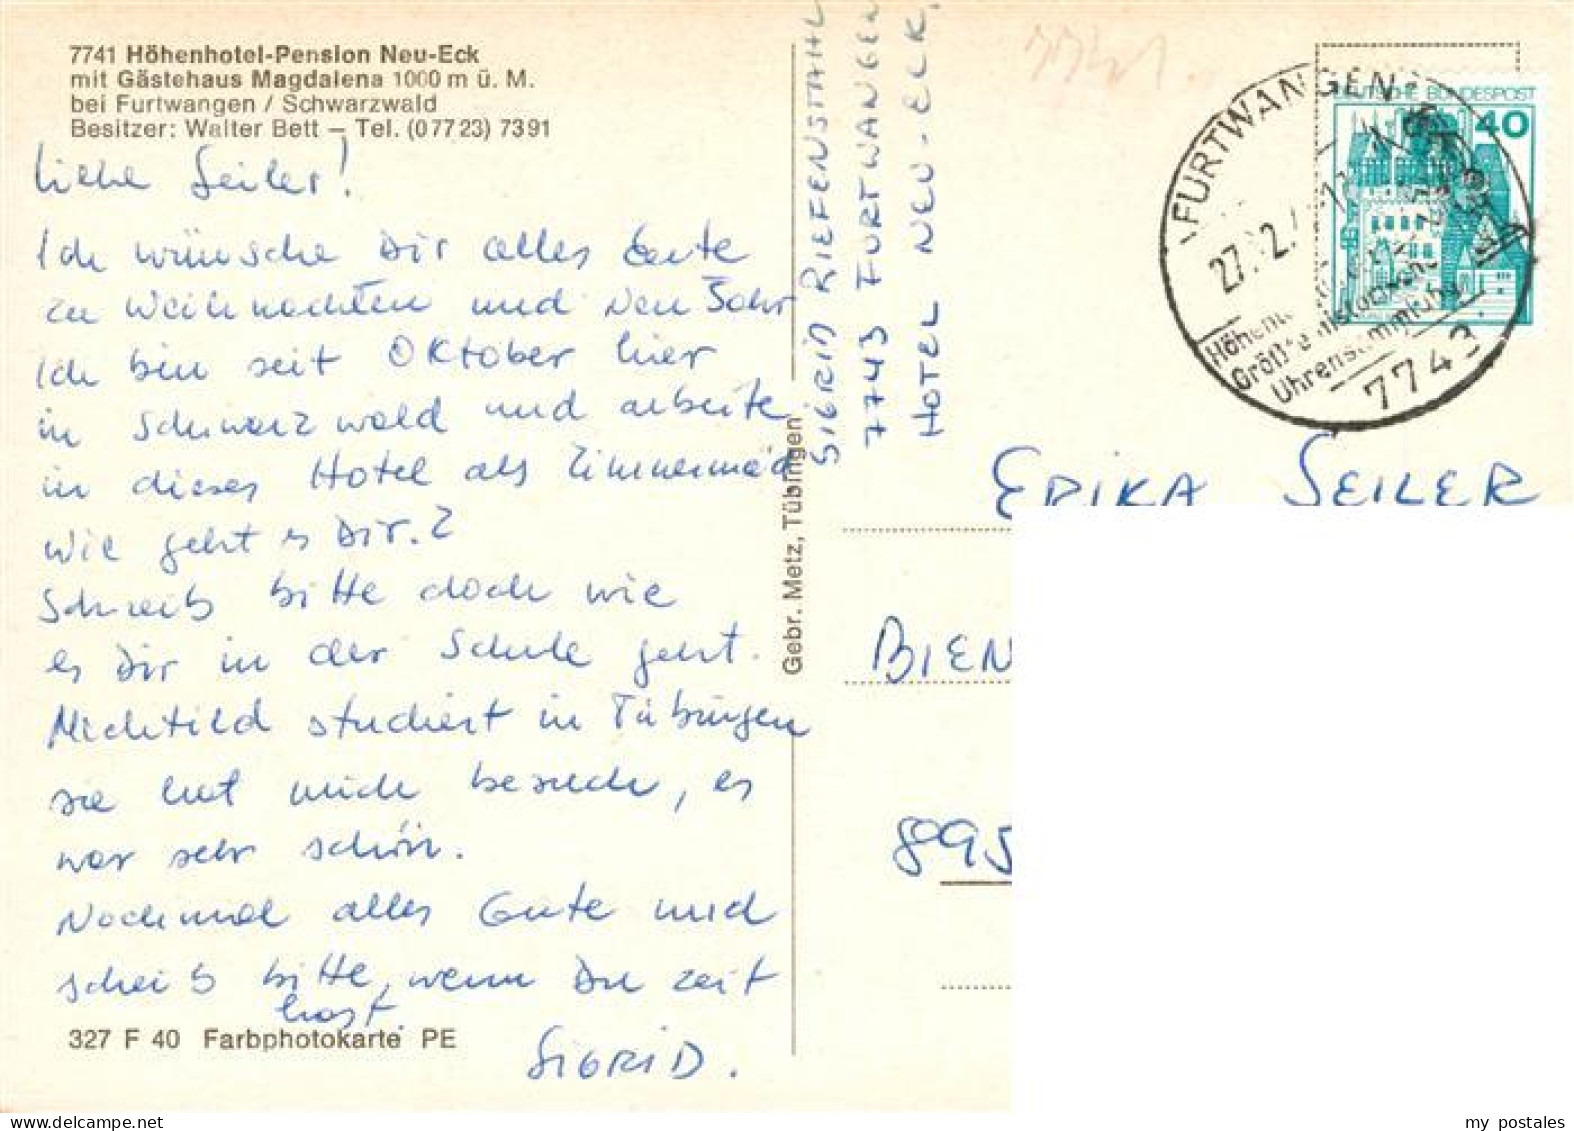 7741 Höhenhotel-Pension Neu-Eck
mit Gästehaus Magdalena 1000 m ü. M.
bei Furtwangen / Schwarzwald
Besitzer: Walter Bett – Tel. (07723) 7391
Liebe Seiler!
Ich wünsche Dir alles Gute
zu Weihnachten und Neu Jahr
Ich bin seit Oktober hier
in Schwarzwald und arbeite
in dieses Hotel als Zimmermäd
Wie geht es Dir.?
Schreib bitte doch wie
es Dir in der Schule geht.
Michtild studiert in Tübingen
sie hat mich besucht, es
war sehr schön.
Nochmal alles Gute und
scheib bitte, wenn Du zeit
hast.
SIGRID.
327 F 40 Farbphotokarte PE
Gebr. Metz, Tübingen
SIGRID RIEFENSTAHL
7743 FURTWANGEN
HOTEL NEU-ECK,
7741.
FURTWANGEN
27.
7743
Uhrensammlung
DEUTSCHE BUNDESPOST
40
ERIKA SEILER
BIEN
895
my postales